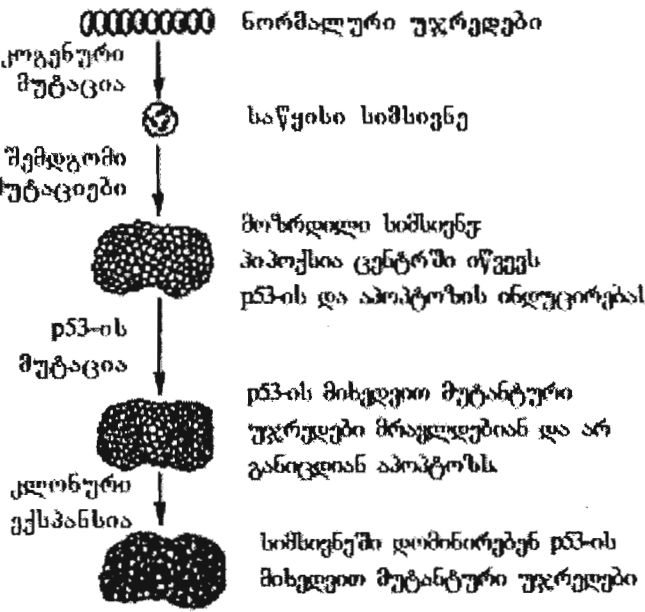 ნორმალური უჯრედები
კოგენური
მუტაცია
საწყისი სიმსივნე
შემდგომი
მუტაციები
მოზრდილი სიმსივნე
ჰიპოქსია ცენტრში იწვევს
p53-ის და აპოპტოზის ინდუცირებას
p53-ის
მუტაცია
p53-ის მიხედვით მუტანტური
უჯრედები მრავლდებიან და არ
განიცდიან აპოპტოზს.
კლონური
ექსპანსია
სიმსივნეში დომინირებენ p53-ის
მიხედვით მუტანტური უჯრედები